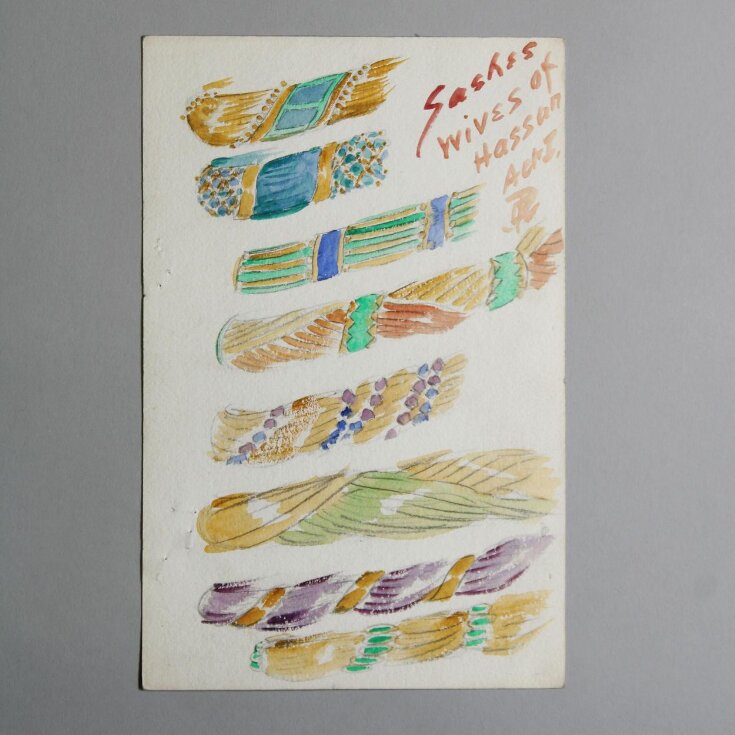 Sashes
wives of
Hassan
Act I.